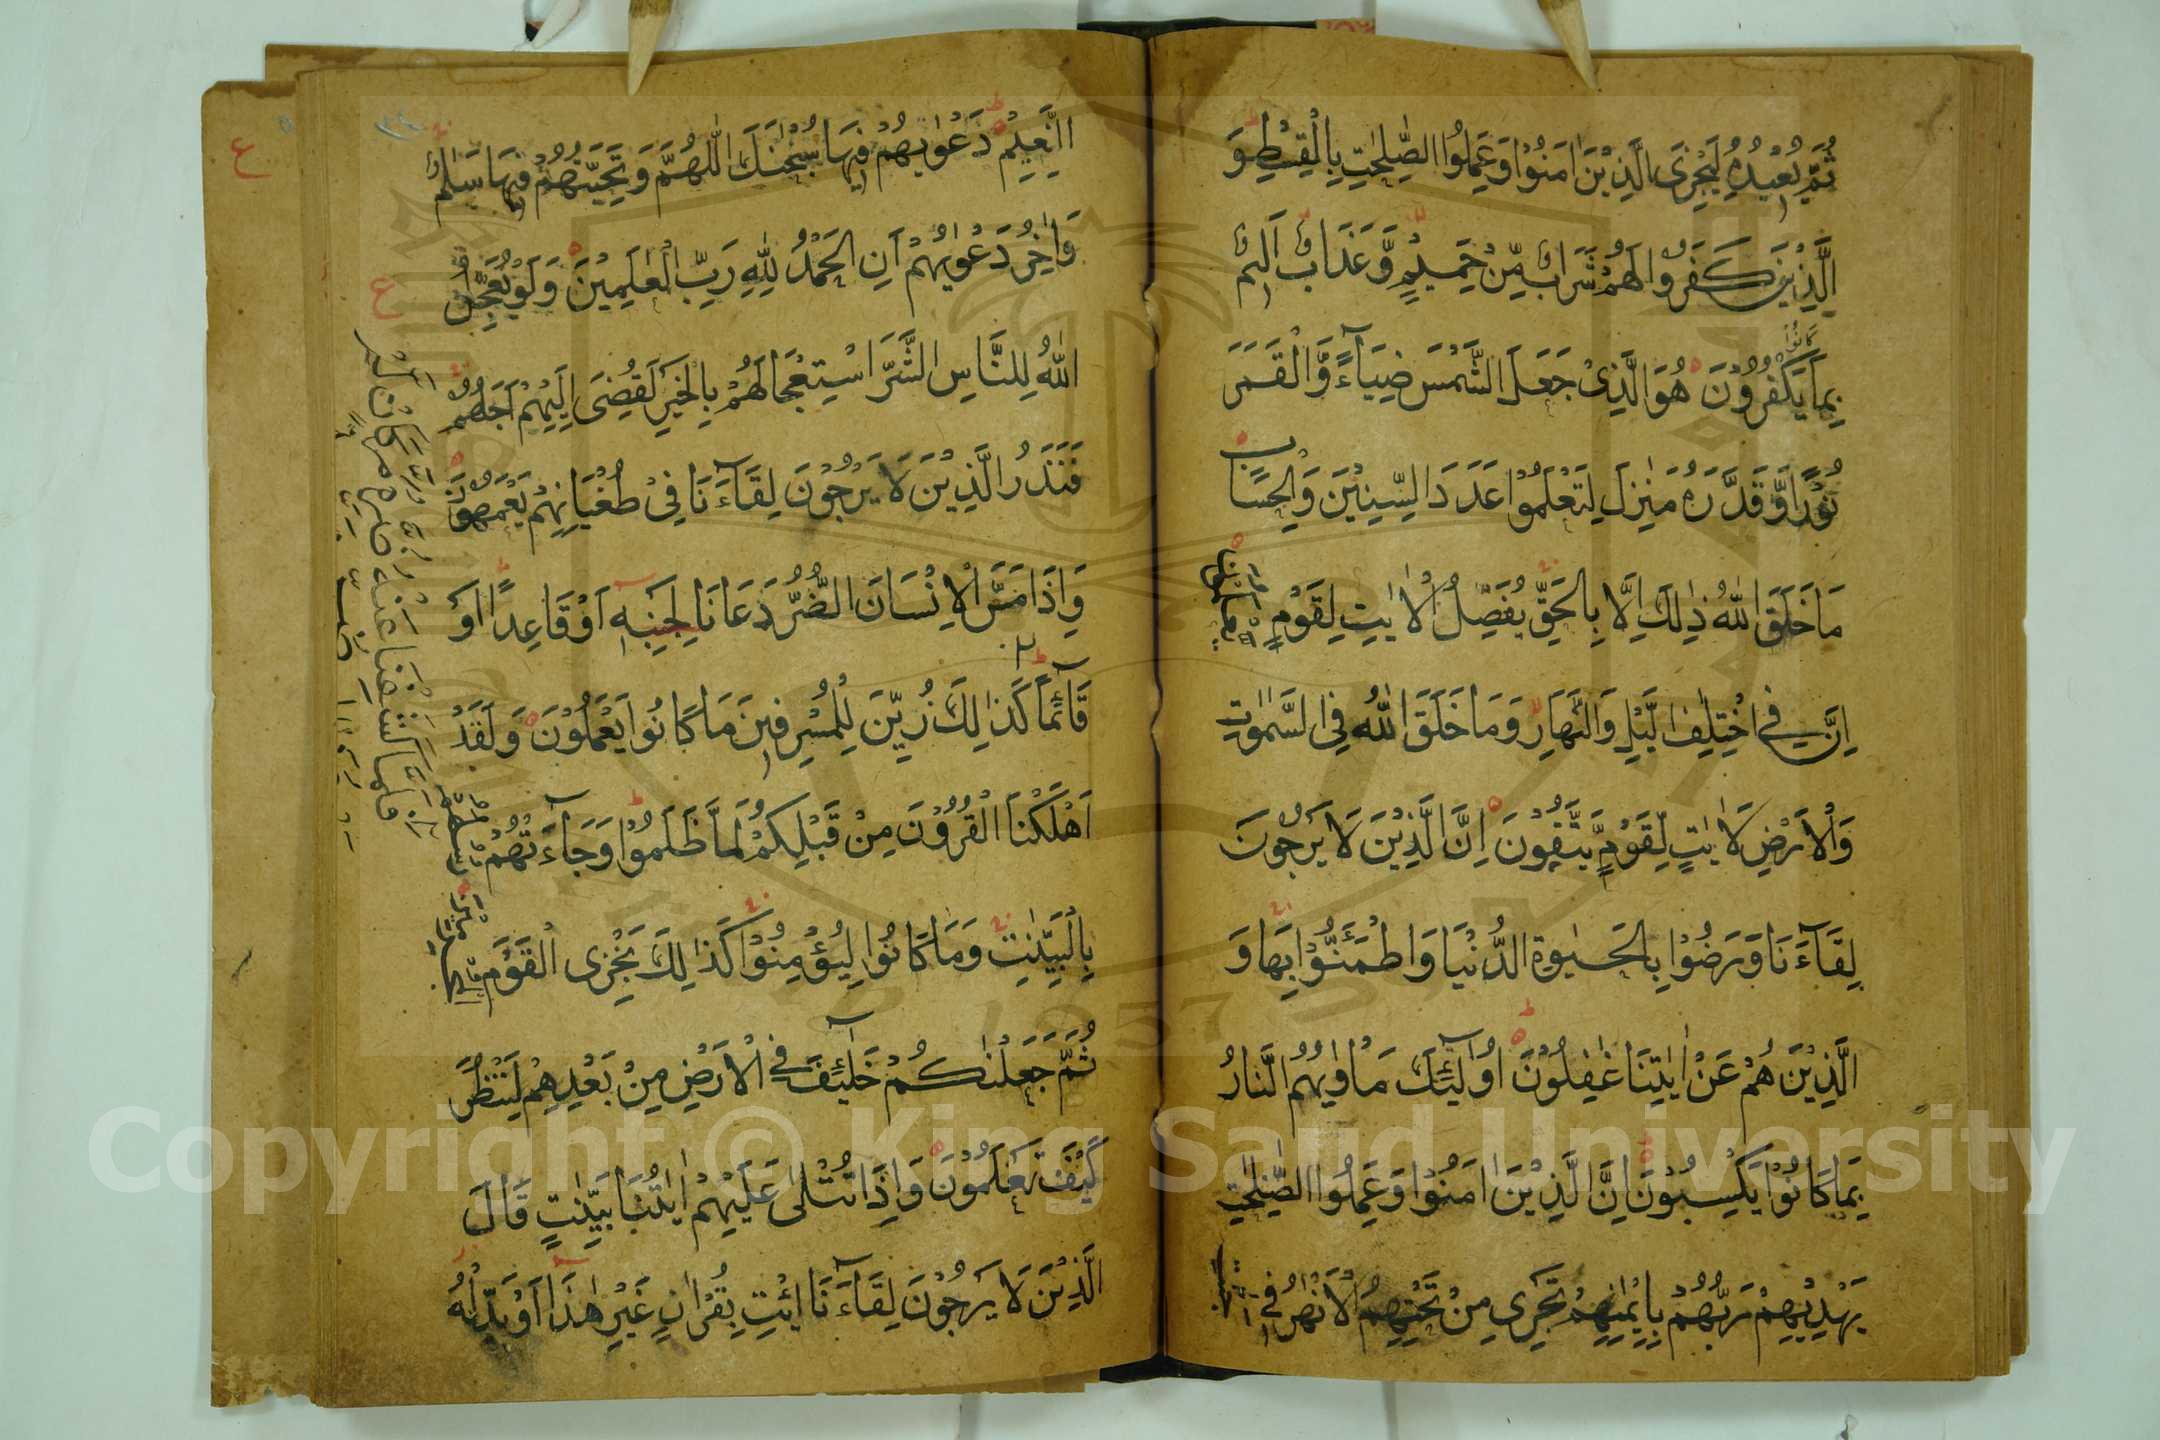 ثُمَّ يُعِيْدُهٗ لِيَجْزِىَ الَّذِيْنَ اٰمَنُوْا وَعَمِلُوا الصّٰلِحٰتِ بِالْقِسْطِ وَ
الَّذِيْنَ كَفَرُوْا لَهُمْ شَرَابٌ مِّنْ حَمِيْمٍ وَّعَذَابٌ اَلِيْمٌ
كَانُوْا
بِمَا يَكْفُرُوْنَ هُوَ الَّذِىْ جَعَلَ الشَّمْسَ ضِيَآءً وَّالْقَمَرَ
نُوْرًا وَّقَدَّرَهٗ مَنَازِلَ لِتَعْلَمُوْا عَدَدَ السِّنِيْنَ وَالْحِسَابَ
مَا خَلَقَ اللّٰهُ ذٰلِكَ اِلَّا بِالْحَقِّ يُفَصِّلُ الْاٰيٰتِ لِقَوْمٍ يَّعْلَمُوْنَ
اِنَّ فِى اخْتِلٰفِ الَّيْلِ وَالنَّهَارِ وَمَا خَلَقَ اللّٰهُ فِى السَّمٰوٰتِ
وَالْاَرْضِ لَاٰيٰتٍ لِّقَوْمٍ يَّتَّقُوْنَ اِنَّ الَّذِيْنَ لَا يَرْجُوْنَ
لِقَآءَنَا وَرَضُوْا بِالْحَيٰوةِ الدُّنْيَا وَاطْمَئَنُّوْا بِهَا وَ
الَّذِيْنَ هُمْ عَنْ اٰيٰتِنَا غٰفِلُوْنَ اُولٰٓئِكَ مَاْوٰيهُمُ النَّارُ
بِمَا كَانُوْا يَكْسِبُوْنَ اِنَّ الَّذِيْنَ اٰمَنُوْا وَعَمِلُوا الصّٰلِحٰتِ
يَهْدِيْهِمْ رَبُّهُمْ بِاِيْمٰنِهِمْ تَجْرِى مِنْ تَحْتِهِمُ الْاَنْهٰرُ فِى جَنّٰتِ
النَّعِيْمِ دَعْوٰيهُمْ فِيْهَا سُبْحٰنَكَ اللّٰهُمَّ وَتَحِيَّتُهُمْ فِيْهَا سَلٰمٌ
وَاٰخِرُ دَعْوٰيهُمْ اَنِ الْحَمْدُ لِلّٰهِ رَبِّ الْعٰلَمِيْنَ وَلَوْ يُعَجِّلُ
اللّٰهُ لِلنَّاسِ الشَّرَّ اسْتِعْجَالَهُمْ بِالْخَيْرِ لَقُضِىَ اِلَيْهِمْ اَجَلُهُمْ
فَنَذَرُ الَّذِيْنَ لَا يَرْجُوْنَ لِقَآءَنَا فِىْ طُغْيَانِهِمْ يَعْمَهُوْنَ
وَاِذَا مَسَّ الْاِنْسَانَ الضُّرُّ دَعَانَا لِجَنْبِهٖ اَوْ قَاعِدًا اَوْ
قَآئِمًا كَذٰلِكَ زُيِّنَ لِلْمُسْرِفِيْنَ مَا كَانُوْا يَعْمَلُوْنَ وَلَقَدْ
اَهْلَكْنَا الْقُرُوْنَ مِنْ قَبْلِكُمْ لَمَّا ظَلَمُوْا وَجَآءَتْهُمْ رُسُلُهُمْ
بِالْبَيِّنٰتِ وَمَا كَانُوْا لِيُؤْمِنُوْا كَذٰلِكَ نَجْزِى الْقَوْمَ الْمُجْرِمِيْنَ
ثُمَّ جَعَلْنٰكُمْ خَلٰٓئِفَ فِى الْاَرْضِ مِنْ بَعْدِهِمْ لِنَنْظُرَ
كَيْفَ تَعْمَلُوْنَ وَاِذَا تُتْلٰى عَلَيْهِمْ اٰيٰتُنَا بَيِّنٰتٍ قَالَ
الَّذِيْنَ لَا يَرْجُوْنَ لِقَآءَنَا ائْتِ بِقُرْاٰنٍ غَيْرِ هٰذَا اَوْ بَدِّلْهُ
فلما كشفنا عنه ضره مر كان لم
ع
ع
Copyright © King Saud University
1957